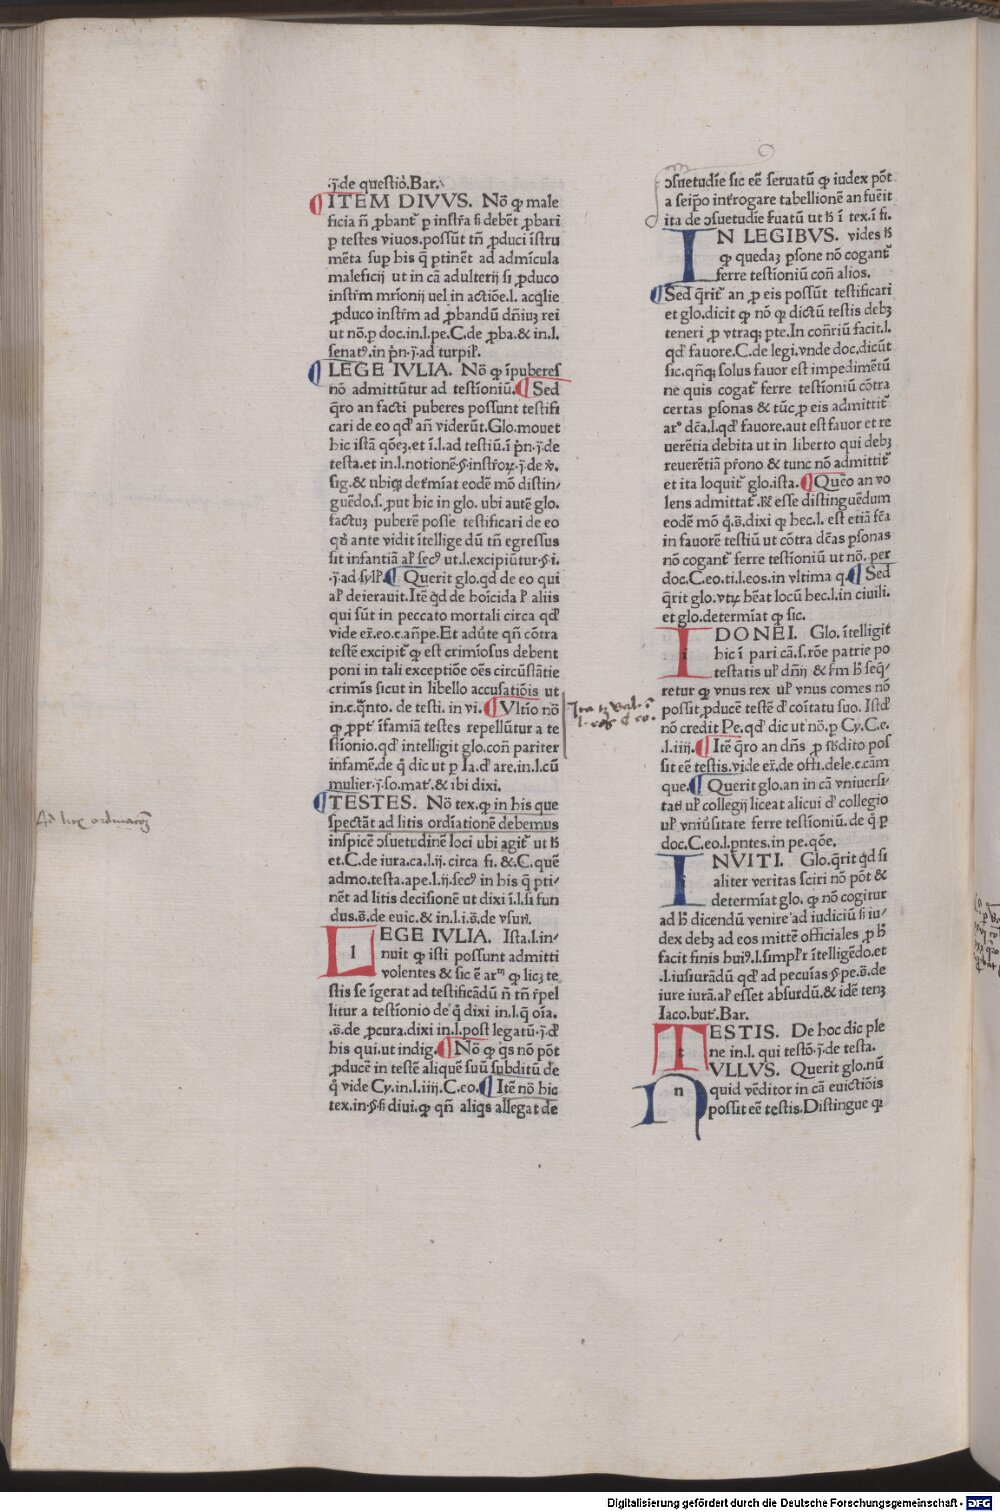 .j̄.de questio᷒.Bar.
¶ITEM DIVVS. Nō ꝙ male
ficia nō ꝓbant᷑ ꝑ instr̄a s̄ debēt ꝓbari
ꝑ testes viuos.possūt tn̄ ꝓduci īstru
mēta suꝑ his q̄ ꝑtinēt ad admīcula
maleficij ut in cā adulterij si ꝓduco
instr̄m mr̄ionij uel in actiōe.l. acq̄lie
ꝓduco instr̄m ad ꝓbandū dn̄iuꝫ rei
ut nō.ꝑ doc.in.l.pe.C.de ꝓba.& in.l.
senatꝰ.in p̄n.j̄.ad turpil᷒.
¶LEGE IVLIA. Nō ꝙ īpuberes
nō admittūtur ad testīoniū.¶Sed
q̄ro an facti puberes possunt testifi
cari de eo qd᷒ an̄ viderūt.Glo.mouet
hic istā q̄oēꝫ.et ī.l.ad testiū.ī p̄n.j̄.de
testa.et in.l.notionē.§.instr̄oꝝ.j̄.de v̄.
sig.& ubicꝫ det̄mīat eodē mō distin-
guēdo.s̄.put hic in glo. ubi autē glo.
factuꝫ puberē posse testificari de eo
qd᷒ ante vidit ītellige dū tn̄ egressus
sit infantiā al᷒ secꝰ ut.l.excipiūtur.§.i.
.j̄.ad syl᷒.¶Querit glo.qd de eo qui
al᷒ deierauit.Itē qd de hoīcida ꝉ aliis
qui sūt in peccato mortali circa qd᷒
vide ex̄.eo.c.an̄pe.Et adūte qn̄ cōtra
testē excipit᷑ ꝙ est crimīosus debent
poni in tali exceptiōe oēs circūstātie
crimīs sicut in libello accusatiōis ut
in.c.q̄nto. de testi. in vi.¶Vltīo nō
ꝙ ꝓpt᷑ īfamiā testes repellūtur a te
stīonio.qd᷒ intelligit glo.con̄ pariter
infamē.de q̊ dic ut ꝑ Ia.d᷒ are.in.l.cū
mulier.j̄.so.mat᷒.& ibi dixi.
¶TESTES. Nō tex.ꝙ in his que
spectāt ad litis ordīationē debemus
inspicē ɔsuetudinē loci ubi agit᷑ ut h̄
et.C.de iura.ca.l.ij. circa fi. &.C.quē
admo.testa.ape.l.ij.secꝰ in his q̄ ꝑti-
nēt ad litis decisionē ut dixi ī.l.si fun
dus.s̄.de euic.& in.l.i.s̄.de vsur᷒.
LEGE IVLIA. Ista.l.in-
nuit ꝙ isti possunt admitti
volentes & sic ē arᵐ ꝙ licꝫ te
stis se īgerat ad testificādū n̄ tn̄ r̄pel
litur a testīonio de q̊ dixi in.l.q̄ oīa.
.s̄.de ꝓcura.dixi in.l.post legatū.j̄.d᷒
his qui.ut indig.¶Nō ꝙ qs nō pōt
ꝓducē in testē aliquē suū subditū de
q̊ vide Cy.in.l.iiij.C.eo.¶Itē nō hic
tex.in.§.s̄ diui.ꝙ qn̄ aliqs allegat de
Ad litꝭ ordinacōꝫ
Ita tꝫ Bal. ī
l. eos C eo.
ɔsuetudīe sic eē seruatū ꝙ iudex pōt
a seip̄o int̄rogare tabellionē an fuerit
ita de ɔsuetudīe s̄uatū ut h̄ ī tex.ī fi.
IN LEGIBVS. vides h̄
ꝙ quedaꝫ ꝑsone nō cogant᷑
ferre testīoniū con̄ alios.
¶Sed q̄rit᷑ an ꝓ eis possūt testificari
et glo.dicit ꝙ nō ꝙ dictū testis debꝫ
teneri ꝓ vtraqꝫ ꝑte.In con̄riū facit.l.
qd᷒ fauore.C.de legi.vnde doc.dicūt
sic.qn̄qꝫ solus fauor est impedimētū
ne quis cogat᷑ ferre testīoniū cōtra
certas ꝑsonas & tūc ꝓ eis admittit᷑
ar᷒ dc̄a.l.qd᷒ fauore.aut est fauor et re
uerētia debita ut in liberto qui debꝫ
reuerētiā pr̄ono & tunc nō admittit᷑
et ita loquit᷑ glo.ista.¶Quero an vo
lens admittat᷑.R̄ esse distinguēdum
eodē mō q̊.s̄.dixi ꝙ hec.l. est etiā fc̄a
in fauorē testiū ut cōtra dc̄as ꝑsonas
nō cogant᷑ ferre testīoniū ut nō. per
doc.C.eo.ti.l.eos.in vltima q.¶Sed
q̄rit glo.vtꝝ hēat locū hec.l.in ciuili.
et glo.determīat ꝙ sic.
IDONEI. Glo.ītelligit᷑
hic ī pari cā.s.rōe patrie po
testatis ul᷒ dn̄ij & s̄m h̄ seq̄-
retur ꝙ vnus rex ul᷒ vnus comes nō
possit ꝓducē testē d᷒ coītatu suo. Istd᷒
nō credit Pe.qd᷒ dic ut nō.ꝑ Cy.C.e.
.l.iiij.¶Itē q̄ro an dn̄s ꝓ sb̄dito pos
sit eē testis.vide ex̄.de offi.dele.c.cām
que.¶Querit glo.an in cā vniuersi-
tat᷒ ul᷒ collegij liceat alicui d᷒ collegio
ul᷒ vniūsitate ferre testīoniū.de q̊ ꝑ
doc.C.eo.l.pn̄tes.in pe.q̄oe.
INVITI. Glo.q̄rit qd si
aliter veritas sciri nō pōt &
determīat glo. ꝙ nō cogitur
ad h̄ dicendū venire ad iudiciū s̄ iu-
dex debꝫ ad eos mittē officiales ꝓ h̄
facit finis huiꝰ.l.simpl᷒r ītelligēdo.et
.l.iusiurādū qd᷒ ad pecuīas.§.pe.s̄.de
iure iurā.al᷒ esset absurdū.& idē tenꝫ
Iaco.but᷒.Bar.
TESTIS. De hoc dic ple
ne in.l. qui testō.j̄.de testa.
NVLLVS. Querit glo.nū
quid vēditor in cā euictiōis
possit eē testis.Distingue ꝙ
Digitalisierung gefördert durch die Deutsche Forschungsgemeinschaft - DFG